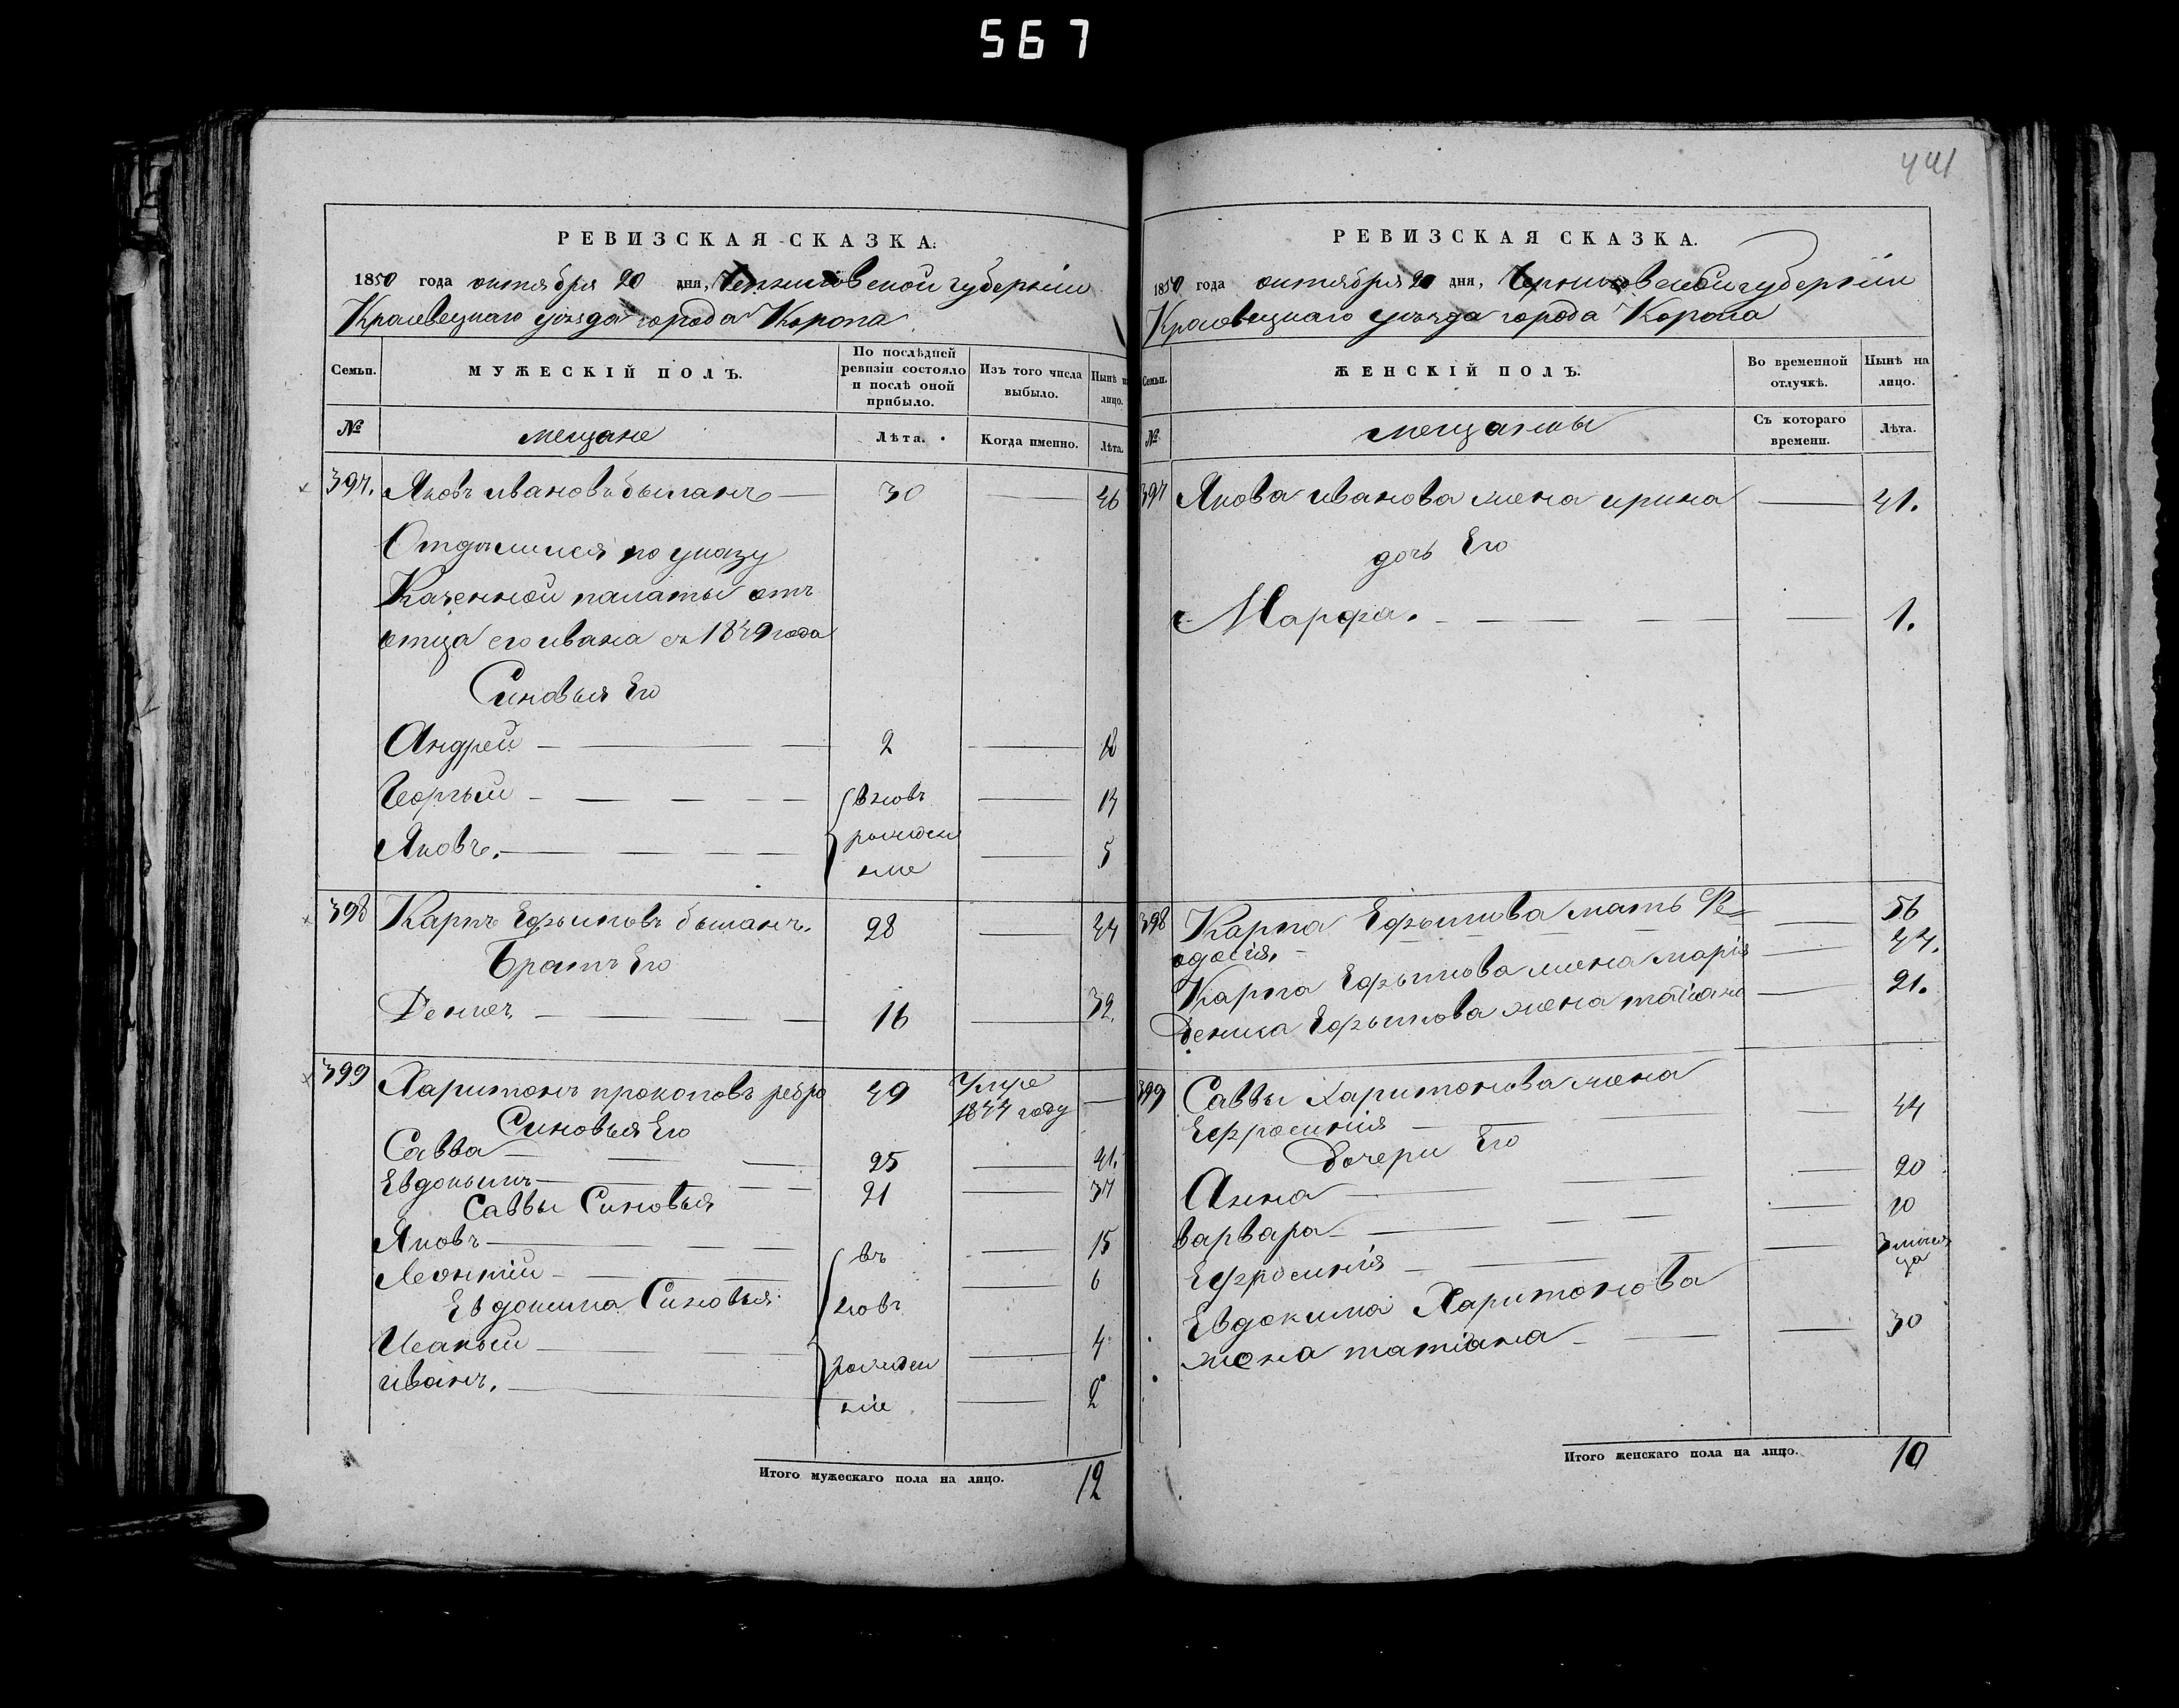 567
441
РЕВИЗСКАЯ СКАЗКА.
1850 года октября 20 дня, Черниговской губерніи
Кролевецкаго уѣзда города Коропа
Семьи.
МУЖЕСКІЙ ПОЛЪ.
По послѣдней ревизіи состояло и послѣ оной прибыло.
Изъ того числа выбыло.
Нынѣ на лицо.
№
мещане
Лѣта.
Когда именно.
Лѣта.
397. Яковъ ивановъ быманъ — 30 — 46
Отдѣлился по указу
Казенной палаты отъ
отца его ивана съ 1849 года
Синовья Его
Андрей — 2 — 18
Георгьій — вновь — 13
Яковъ. — рожден — 5
ные
398 Карпъ Ефьимовъ быманъ. 28 — 44
Братъ Его
Денисъ — 16 — 32.
399 Харитонъ прокоповъ ребро 49 Умре —
1844 году
Синовья Его
Савва — 25 — 41.
Евдокьимъ — 21 — 37
Саввы Синовья
Яковъ — въ — 15
Леонтій — 6
Евдокима Синовья
новъ
Исакьій — 4
рожден
иванъ. — ніе — 2
Итого мужескаго пола на лицо. 12
РЕВИЗСКАЯ СКАЗКА.
1850 года октября 20 дня, Черниговской губерніи
Кролевецкаго уѣзда города Коропа
Семьи.
ЖЕНСКІЙ ПОЛЪ.
Во временной отлучкѣ.
Нынѣ на лицо.
№
мещанки
Съ котораго времени.
Лѣта.
397 Якова иванова жена ирина — 41.
дочь Его
Марфа. — 1.
398 Карпа Ефьимова мать Фе — 56
одосія.
Карпа Ефьимова жена марія — 44.
Дениса Ефьимова жена татіана — 21.
399 Саввы Харитонова жена
Ефросинія — 44
Дочери Его
Анна — 20
варвара — 10
Ефросинія — 3 месяца
Евдокима Харитонова
жена татіана — 30
Итого женскаго пола на лицо. 10